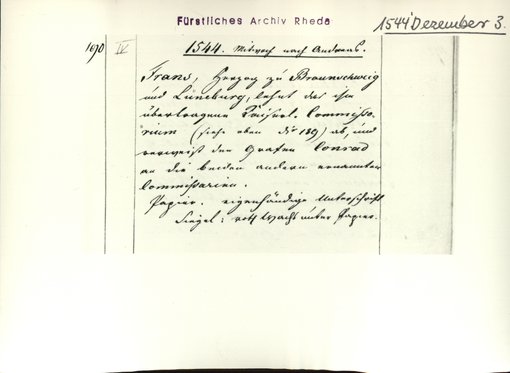 Fürstliches Archiv Rheda
1544 Dezember 3.
1690 IV 1544. Mitwoch nach Andreas.
Franz, Herzog zu Braunschweig
und Lüneburg, lehnt das ihm
übertragene Kaiserl. Commisso-
rium (siehe oben Nr 189) ab, und
verweist den Grafen Conrad
an die beiden andern ernannten
Commissarien.
Papier. eigenhändige Unterschrift
Siegel: roth Wachs unter Papier.